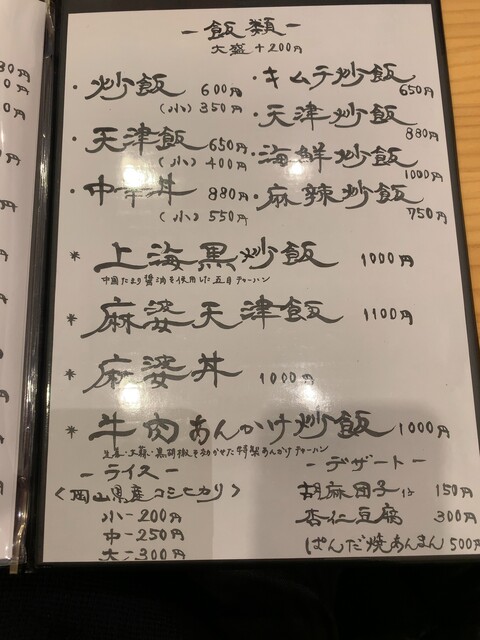 - 飯類 -
大盛 +200円
・炒飯 600円
(小) 350円
・天津飯 650円
(小) 400円
・中華丼 880円
(小) 550円
・キムチ炒飯
650円
・天津炒飯
880円
・海鮮炒飯
1000円
・麻辣炒飯
750円
* 上海黒炒飯 1000円
中国たまり醤油を使用した五目チャーハン
* 麻婆天津飯 1100円
* 麻婆丼 1000円
* 牛肉あんかけ炒飯 1000円
生姜・大蒜・黒胡椒を効かせた特製あんかけチャーハン
- ライス -
〈岡山県産コシヒカリ〉
小-200円
中-250円
大-300円
- デザート -
胡麻団子 150円
杏仁豆腐 300円
ぱんだ焼あんまん 500円